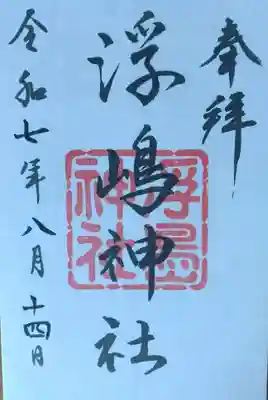 奉拝
浮嶋神社
浮嶋神社
令和七年八月十四日